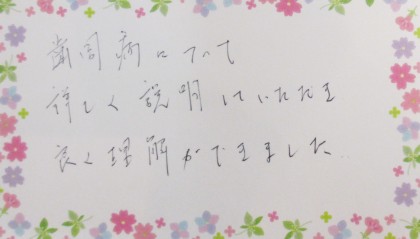 歯周病について
詳しく説明していただき
良く理解ができました。